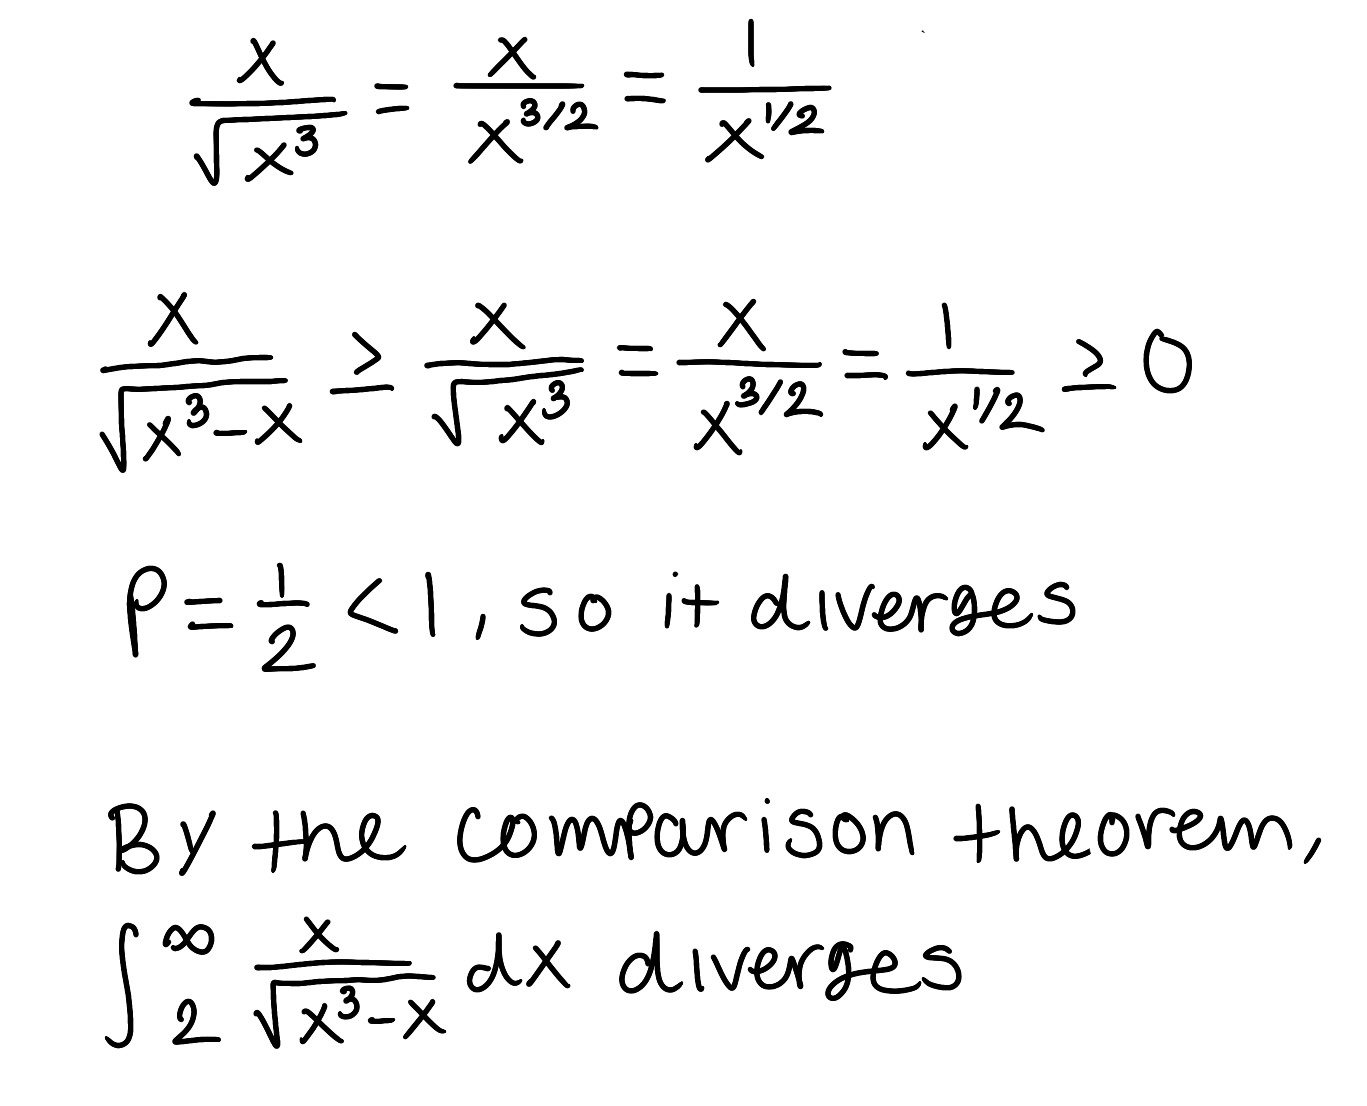 x/√(x^3) = x/x^(3/2) = 1/x^(1/2)
x/√(x^3-x) ≥ x/√(x^3) = x/x^(3/2) = 1/x^(1/2) ≥ 0
P = 1/2 < 1, so it diverges
By the comparison theorem,
∫_2^∞ x/√(x^3-x) dx diverges